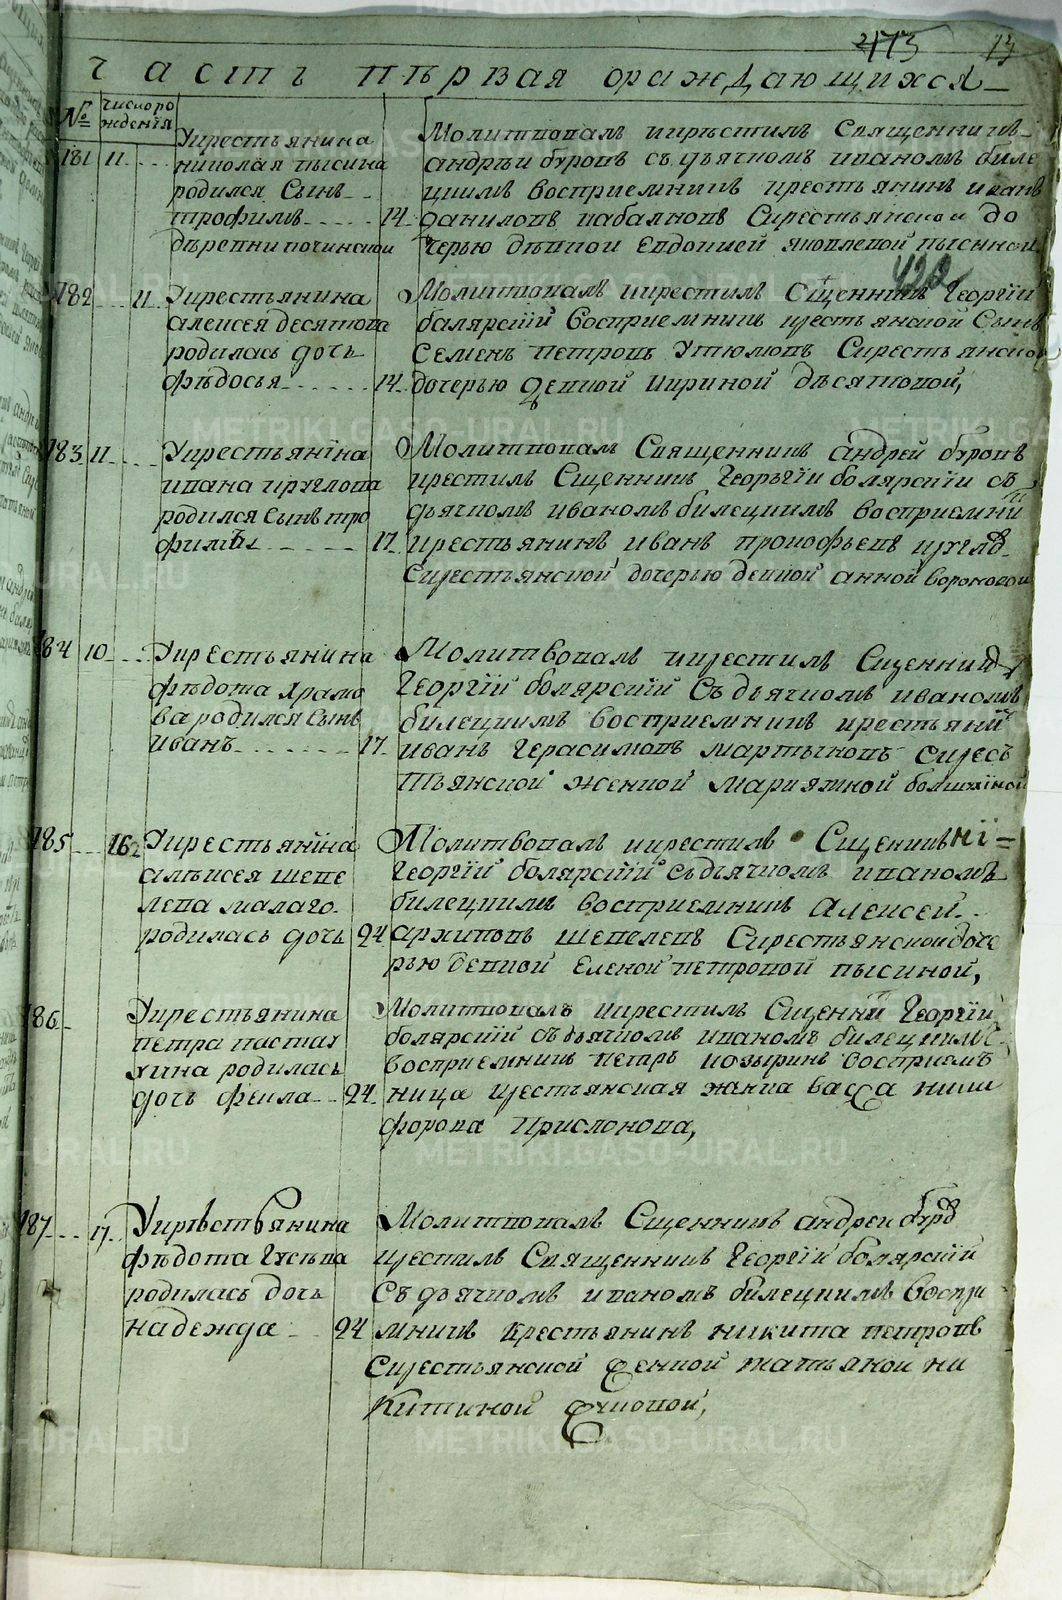 473 13
часть първая ораждающихся
№ число рождения
181 11 Укрестьянина
николая пысина
родился сынъ
трофимъ 14
дъревни починской
Молитвовалъ икрѣстилъ священникъ
андрѣи буровъ съ дьячкомъ иваномъ биле
цкимъ восприемникъ крестьянинъ иванъ
даниловъ кабаковъ скрестьянской до
черью дѣвкой Евдокией яковлевой пысиной
422
182 11 Укрестьянина
алексея десяткова
родилась дочь
фѣдосья 14
Молитвовалъ икрестилъ сщенникъ Георгіи
балярскіи восприемникъ крестьянской сынъ
семенъ петровъ Утюмовъ скрестьянской
дочерью девкой ириной дѣсятковой,
183 11 Укрестьяніна
ивана круглова
родился сынъ тро
фимъ 17
Молитвовалъ священникъ андрей буровъ
крестилъ сщенникъ Георьгіи болярскіи съ
дьячкомъ иваномъ билецкимъ восприемни
крестьянинъ иванъ прокофьевъ кругло
скрестьянской дочерью девкой анной вороновой
184 10 Укрестьянина
фѣдота храмо
ва родился сынъ
иванъ 17
Молитвовалъ икрестилъ сщенникъ
Георгіи болярскіи съ дьячкомъ иваномъ
билецкимъ восприемникъ крестьянин
иванъ герасимовъ мартыновъ скрес
тьянской женкой мариямной
185 16 Укрестьяніна
алѣксея шепе
лева малаго
родилась дочь 24
Молитвовалъ икрестилъ сщенникъ
Георгіи болярскіи съдьячкомъ иваномъ
билецкимъ восприемникъ Алексей
архиповъ шепелевъ скрестьянской доче
рью девкой еленой петровой пысиной,
186 Укрестьянина
петра пастах
хина родилась
дочь феила 24
Молитвовалъ икрестилъ сщенник Георгіи
болярскіи съ дьячкомъ иваномъ билецкимъ
восприемникъ петръ козыринъ восприем
ница крестьянская жѣнка васса ники
форова Прислонова,
187 17 Укрѣстьянина
фѣдота гусѣва
родилась дочь
надежда 24
Молитвовалъ сщенникъ андреи буро
крестилъ священникъ Георгіи болярскіи
съ дьячкомъ иваномъ билецкимъ воспри
мникъ крестьянинъ никита петровъ
скрестьянской девкой татьяной ни
китиной
METRIKI.GASO-URAL.RU